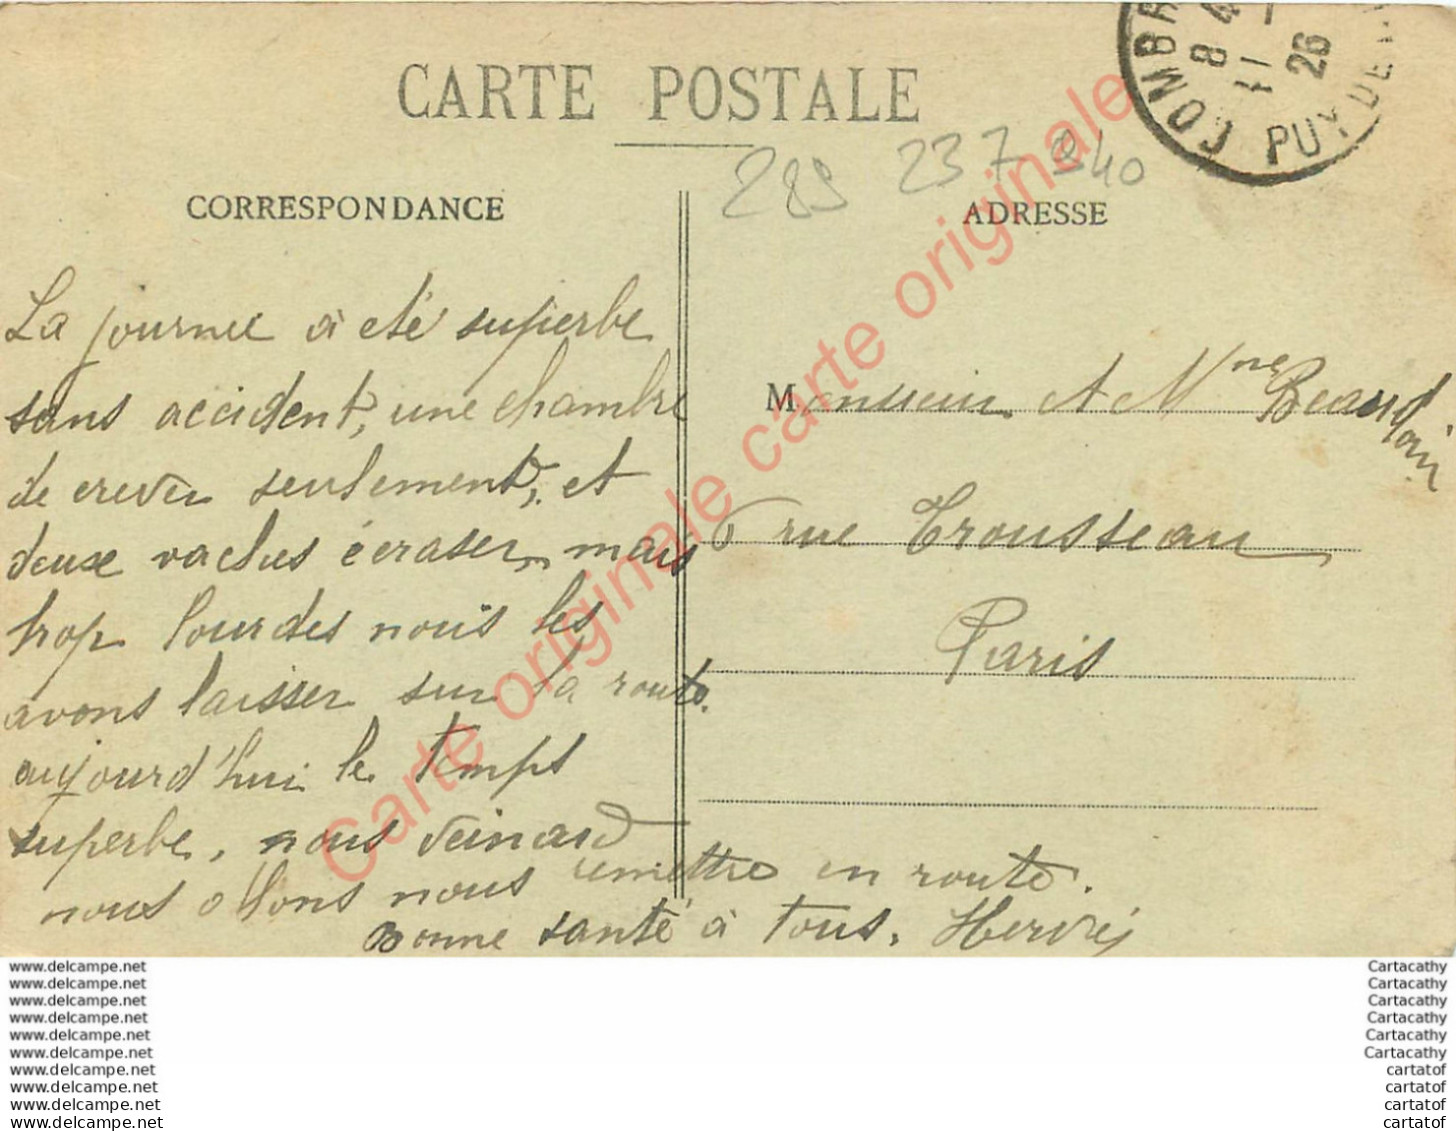 CARTE POSTALE
COMBR
8 4
11 -
26
PUY DE
289 237 240
CORRESPONDANCE
ADRESSE
La journee à eté superbe
sans accident, une chambre
de crever seulement, et
deux vaches écraser, mais
trop lourdes nous les
avons laisser sur la route.
aujourd'hui le temps
superbe, nous veinard
nous allons nous remettre en route.
Bonne santé à tous. Hervé
Monsieur et Mme Beaudoin
6 rue Trousseau
Paris
Carte originale carte originale
www.delcampe.net
www.delcampe.net
www.delcampe.net
www.delcampe.net
www.delcampe.net
www.delcampe.net
www.delcampe.net
www.delcampe.net
www.delcampe.net
www.delcampe.net
Cartacathy
Cartacathy
Cartacathy
Cartacathy
Cartacathy
Cartacathy
cartatof
cartatof
cartatof
cartatof